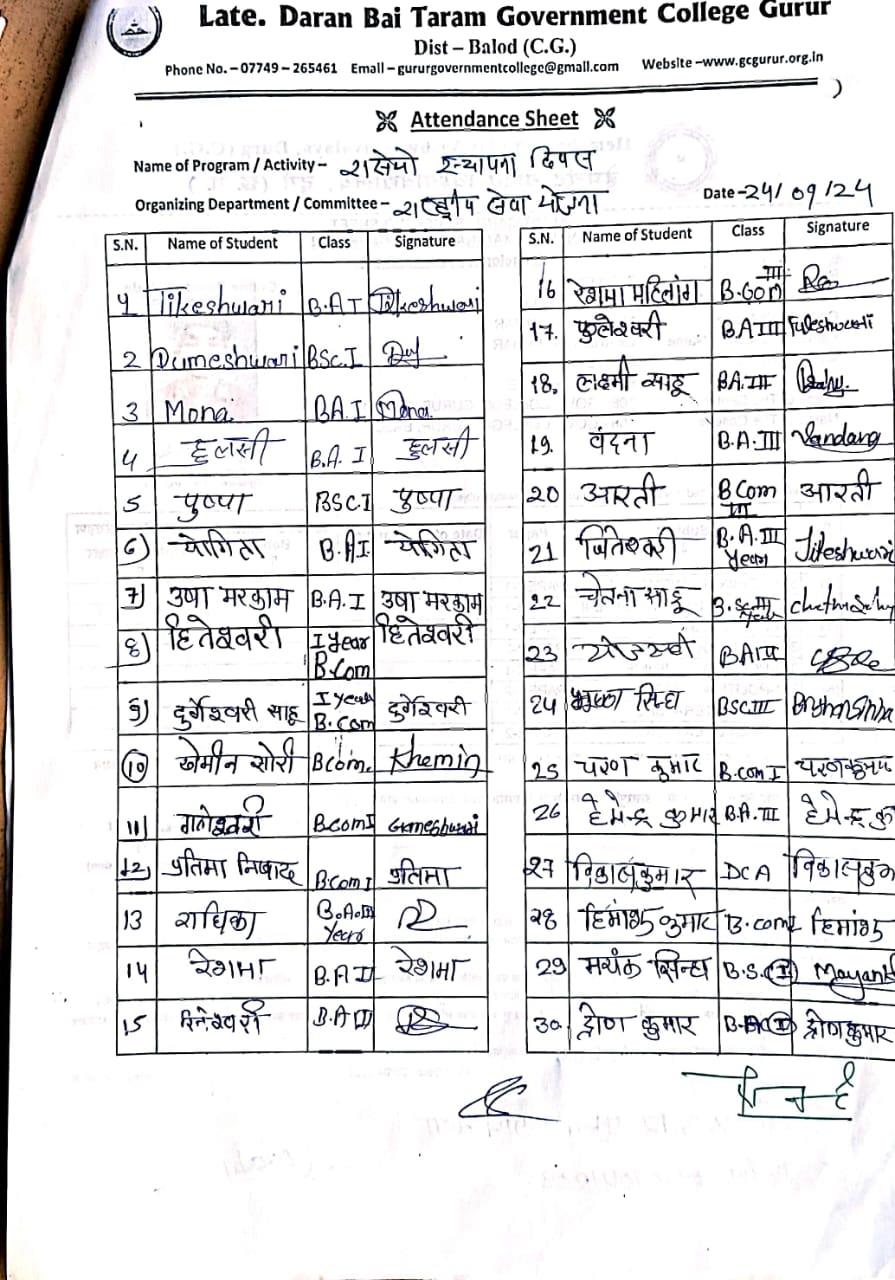 Late. Daran Bai Taram Government College Gurur
Dist – Balod (C.G.)
Phone No. – 07749 – 265461 Email – gururgovernmentcollege@gmail.com Website –www.gcgurur.org.in
Attendance Sheet
Name of Program / Activity – रासेयो स्थापना दिवस
Organizing Department / Committee – राष्ट्रीय सेवा योजना
Date -24/09/24
S.N. Name of Student Class Signature
1 Tikeshwari B.A I Tikeshwari
2 Dumeshwari BSc.I
3 Mona BA.I Mona
4 हुलसी B.A. I हुलसी
5 पुष्पा BSC.I पुष्पा
6) योगिता B.A I योगिता
7) उषा मरकाम B.A.I उषा मरकाम
8) हितेश्वरी I year B.Com हितेश्वरी
9) दुर्गेश्वरी साहू I year B.Com दुर्गेश्वरी
10 खेमीन सोरी Bcom. Khemin
11) गनेश्वरी B.com I Gameshwari
12) प्रतिमा निषाद B.com I प्रतिमा
13 राधिका B.A.III Years
14 रेशमा B.A II रेशमा
15 B.A III
S.N. Name of Student Class Signature
16 रेशमा महिलांग B.Com III
17. फुलेश्वरी BA III Fuleshwari
18. लक्ष्मी साहू BA.III
19. वंदना B.A.III Vandana
20 आरती B Com III आरती
21 जितेश्वरी B.A.III Year Jiteshwari
22 चेतना साहू
23 BA III
24 सिन्हा BSC III
25 चरण कुमार B.com I
26 हेमेन्द्र कुमार B.A.III हेमेन्द्र कु
27 विकास कुमार DCA
28 हिमांशु कुमार B.com I हिमांशु
29 मयंक सिन्हा B.S.C I Mayank
30. द्रोण कुमार द्रोण कुमार